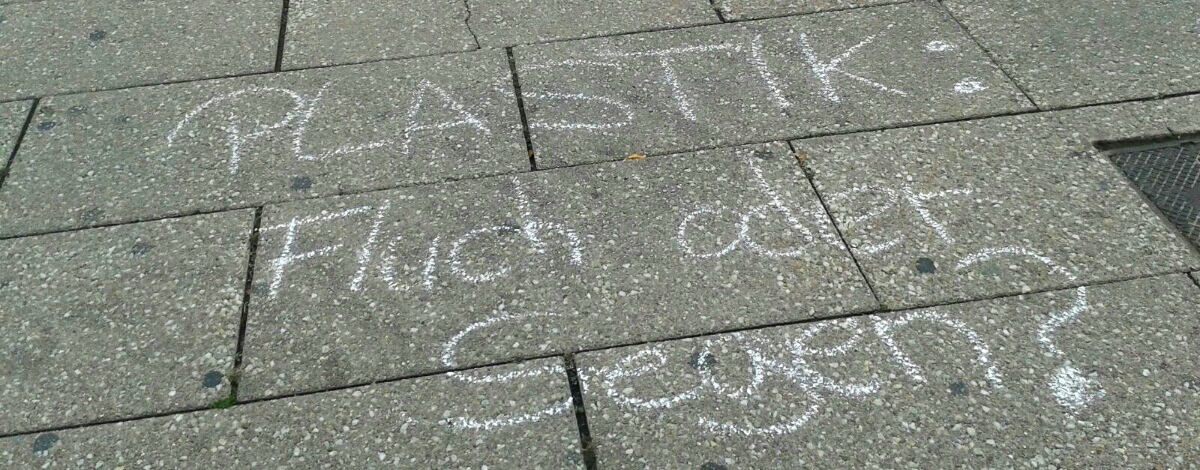 PLASTIK:
Fluch oder
Segen?